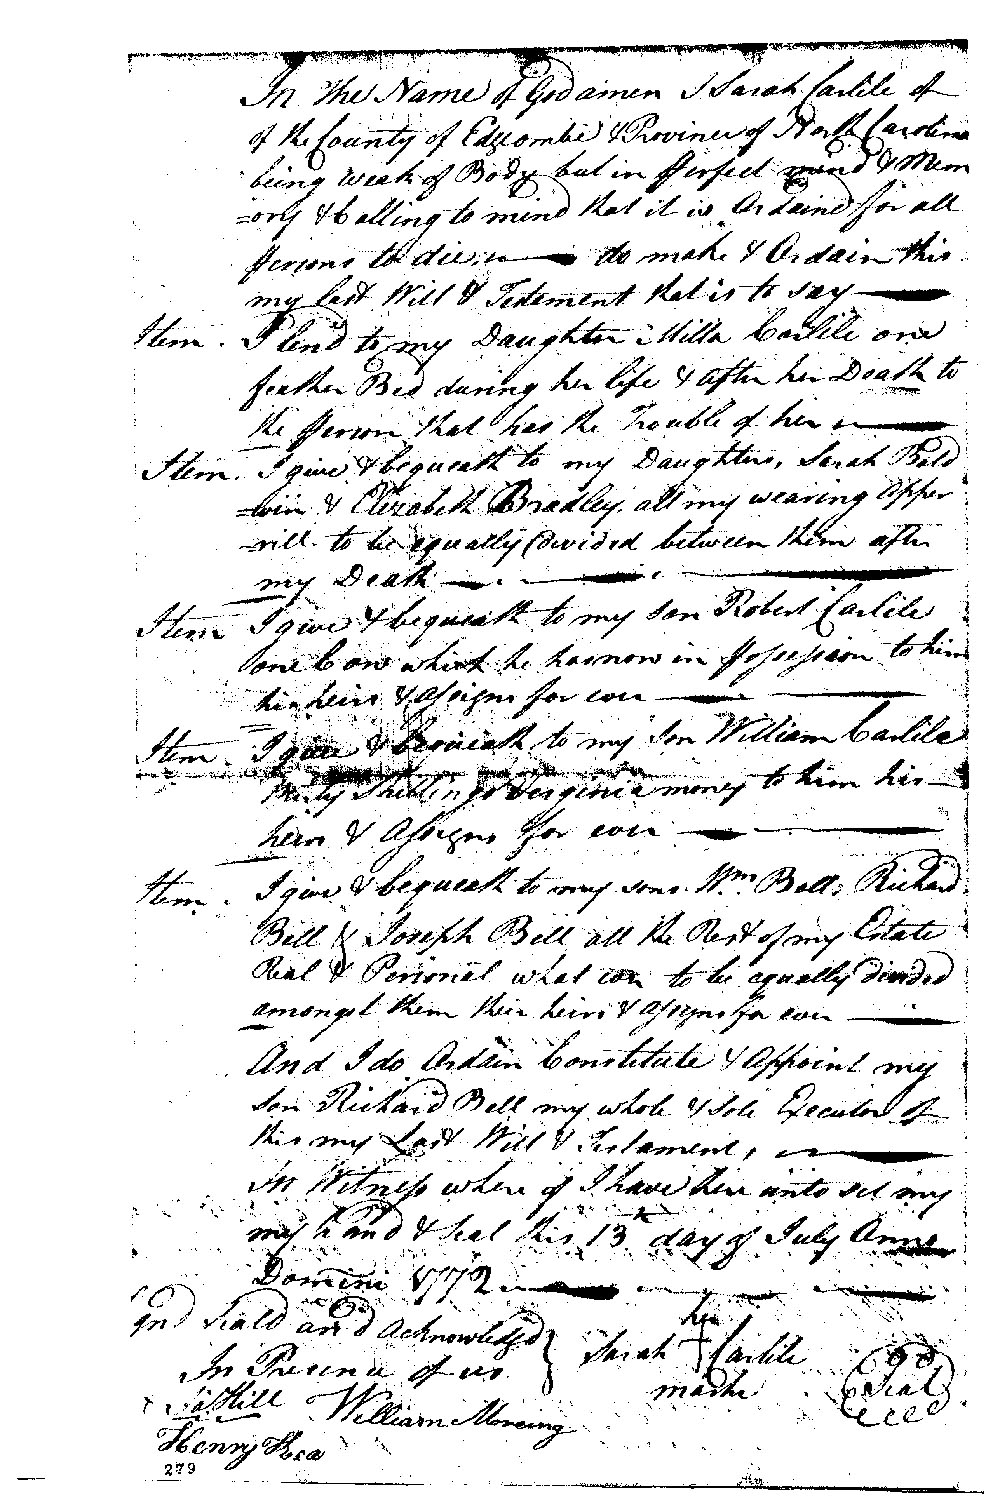 In the Name of God amen I Sarah Carlile of
of the County of Edgcombe & Province of North Carolina
being weak of Body but in perfect mind & Mem
=ory & Calling to mind that it is Ordaind for all
persons to die do make & Ordain this
my last Will & Testement that is to say
Item. I lend to my Daughter Milla Carlile one
feather Bed during her life & after her Death to
the person that has the Trouble of her
Item. I give & bequeath to my Daughters, Sarah Bald
=win & Elizabeth Bradley all my wearing Apper
=rill to be equally divided between them after
my Death
Item I give & bequeath to my son Robert Carlile
one Cow which he has now in possession to him
his heirs & assigns for ever
Item. I give & bequeath to my son William Carlile
Shillings Verginia money to him his
heirs & assigns for ever
Item. I give & bequeath to my sons Wm. Bell, Richard
Bell & Joseph Bell all the Rest of my Estate
Real & Personel what ever to be equally divided
amongst them their heirs & assigns for ever
And I do Ordain Constitute & appoint my
son Richard Bell my whole & sole Executor of
this my Last Will & Testament,
In Witness where of I have here unto set my
my hand & seal this 13th day of July Anno
Domini 1772
gnd Seald and acknowledgd
In Presence of us
her
Sarah + Carlile
marke
Seal
Hill William Moreing
Henry Hea
279